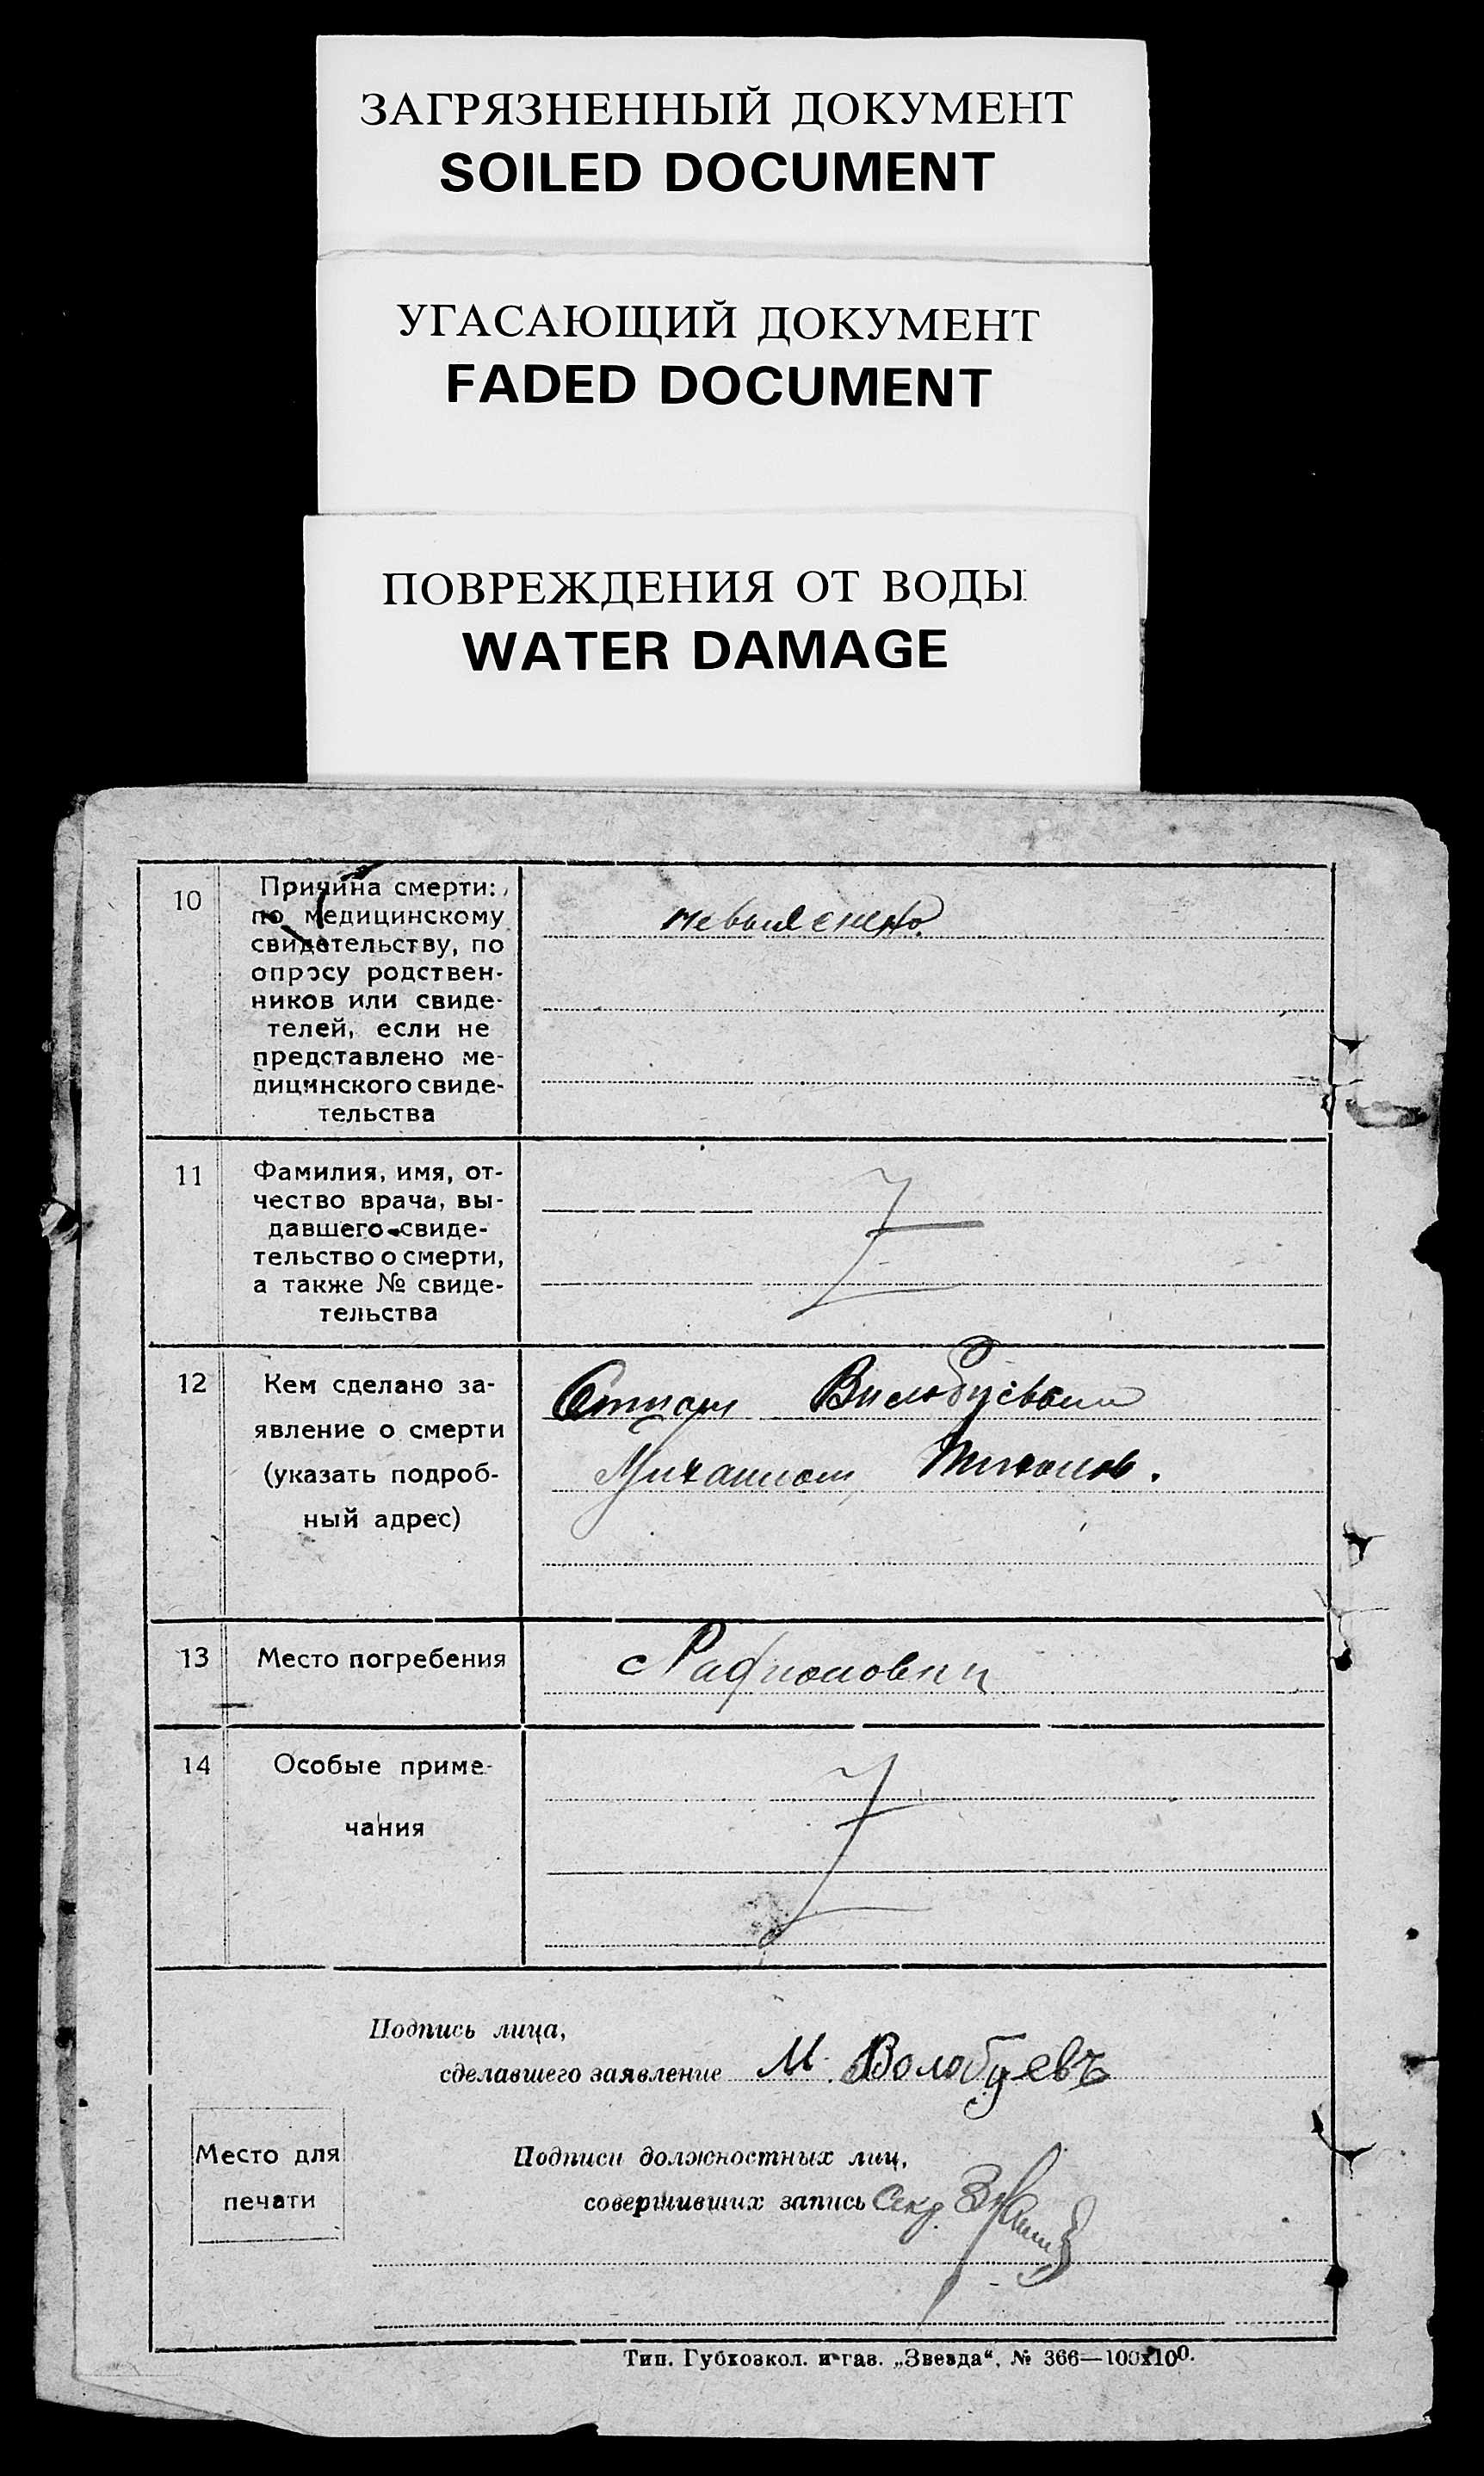 ЗАГРЯЗНЕННЫЙ ДОКУМЕНТ
SOILED DOCUMENT
УГАСАЮЩИЙ ДОКУМЕНТ
FADED DOCUMENT
ПОВРЕЖДЕНИЯ ОТ ВОДЫ
WATER DAMAGE
10
Причина смерти:
по медицинскому
свидетельству, по
опросу родствен-
ников или свиде-
телей, если не
представлено ме-
дицинского свиде-
тельства
невыяснено.
11
Фамилия, имя, от-
чество врача, вы-
давшего свиде-
тельство о смерти,
а также № свиде-
тельства
12
Кем сделано за-
явление о смерти
(указать подроб-
ный адрес)
Отцом
Михаилом
13
Место погребения
14
Особые приме-
чания
Подпись лица,
сделавшего заявление М. Волобуевъ
Место для
печати
Подписи должностных лиц,
совершивших запись Секр.
Тип. Губкозкол. и газ. „Звезда“, № 366—100х100.